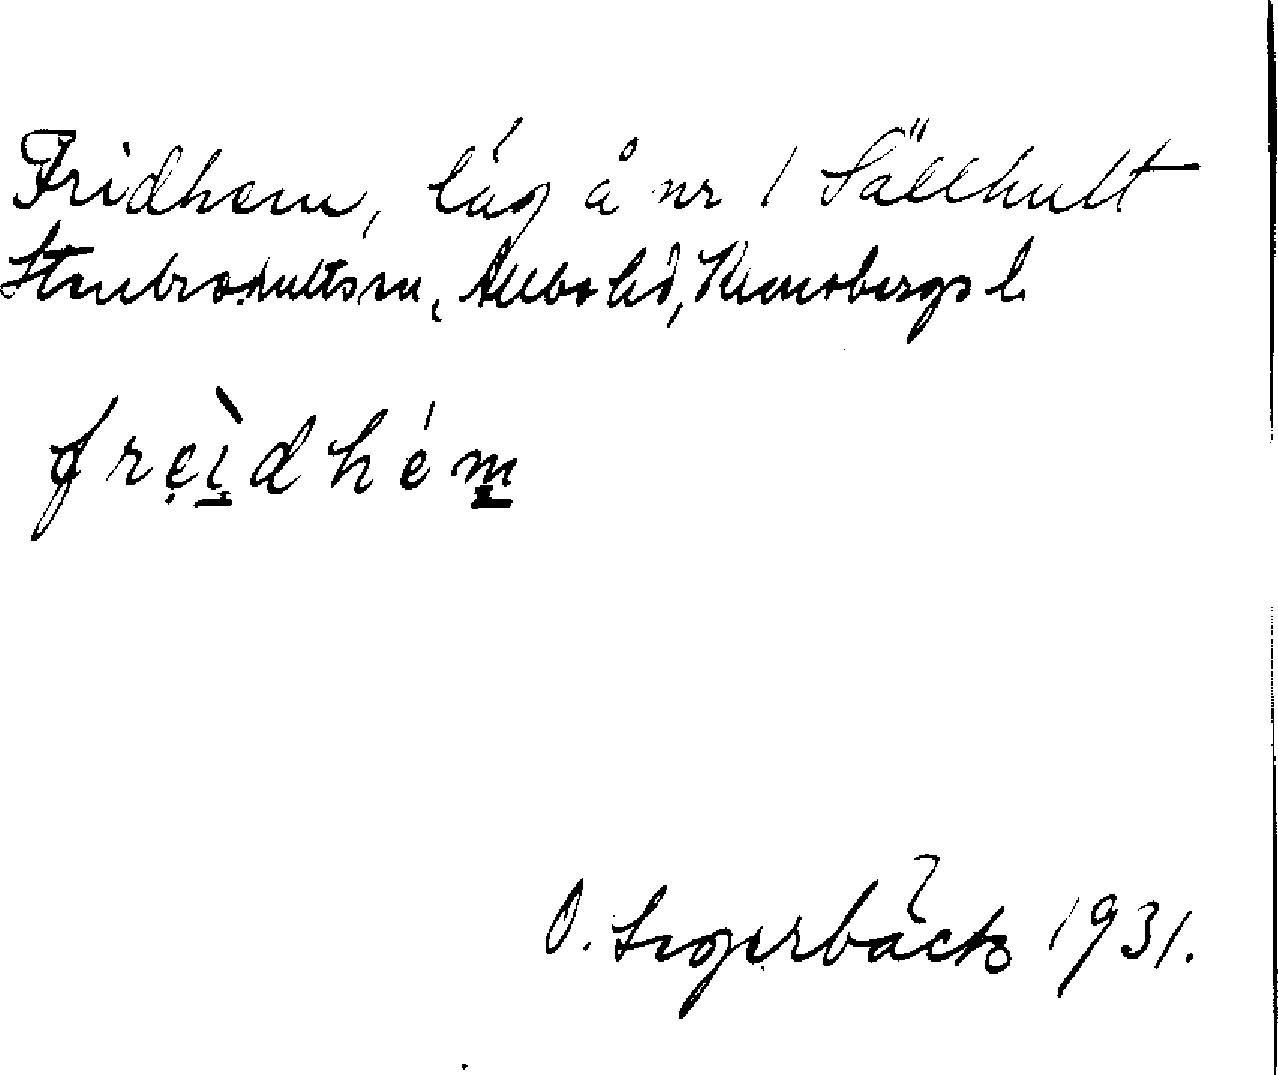 Fridhem, läg å nr 1 Sällhult
Stenbrohults sn, Allbo hd, Kronobergs l.
frei̯dhém̥
O. Segerbäck 1931.